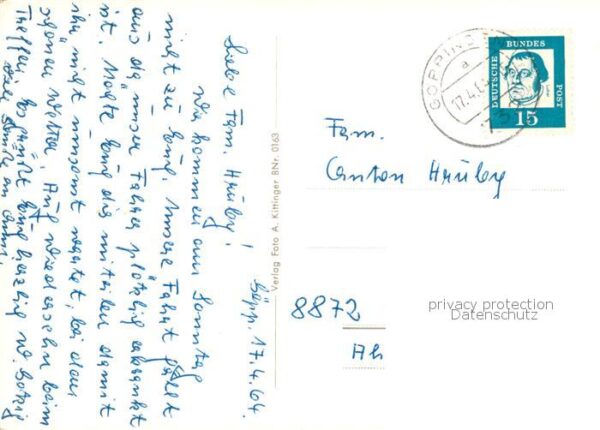 Göpp. 17.4.64.
Liebe Fam. Hruby!
Wir kommen am Sonntag
nicht zu Euch, unsere Fahrt fällt
aus da unser Fahrer plötzlich erkrankt
ist. Möchte Euch das mitteilen damit
ihr nicht umsonst wartet, bei dem
schönen Wetter. Auf Wiedersehn beim
Treffen. Es grüßt Euch herzlich
Verlag Foto A. Kittinger BNr. 0163
GÖPPINGEN
a
17.4.64
DEUTSCHE BUNDES POST
15
Fam.
Anton Hruby
8872
privacy protection
Datenschutz